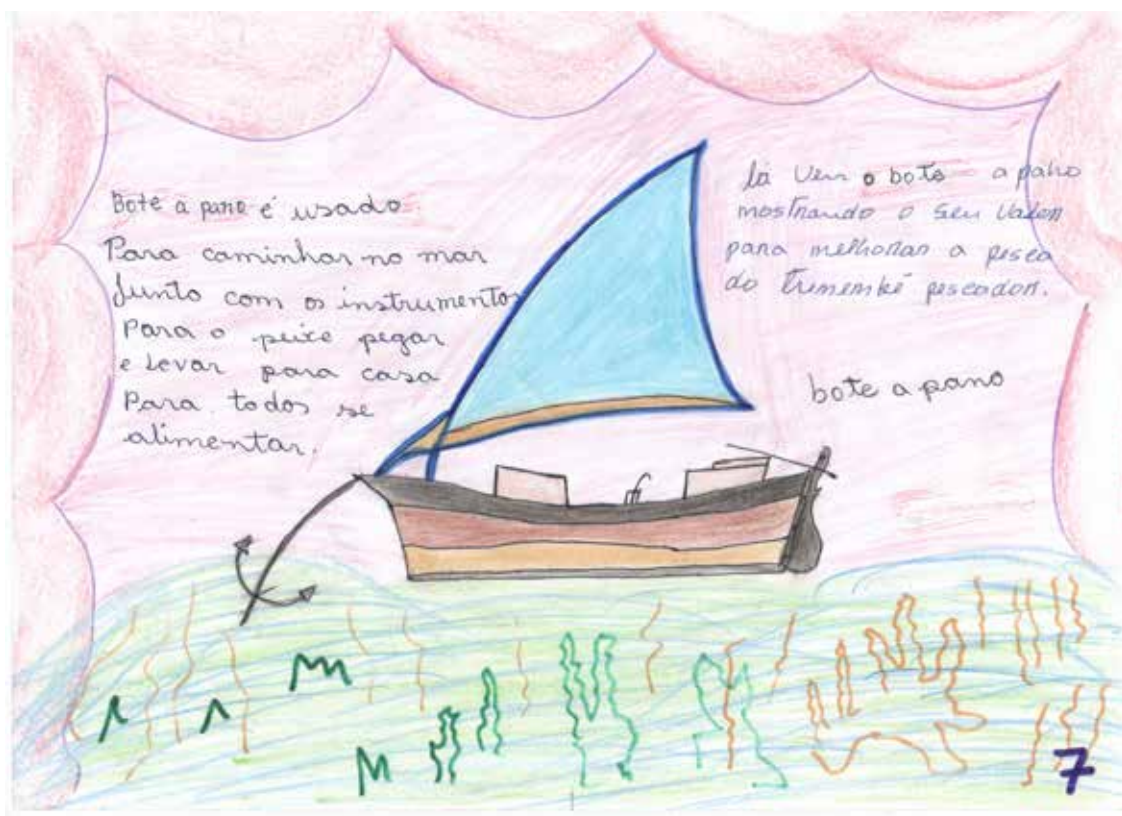 Bote a pano é usado
Para caminhar no mar
Junto com os instrumentos
Para o peixe pegar
e levar para casa
Para todos se
alimentar.
lá vem o bote a pano
mostrando o seu valor
para melhorar a pesca
do tremembé pescador.
bote a pano
7